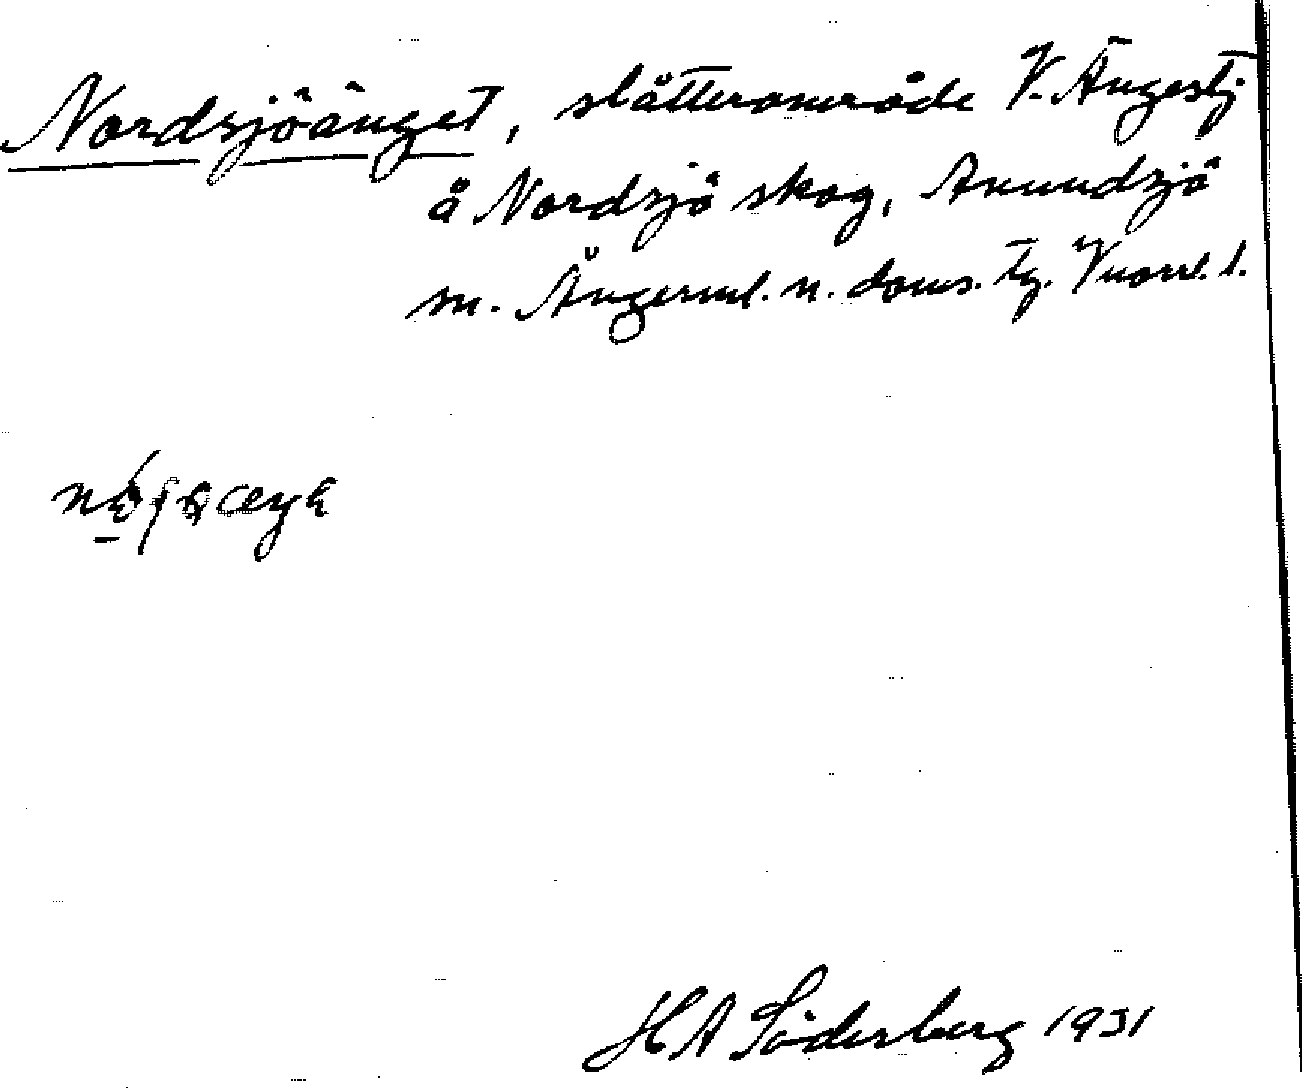 Nordsjöänget, slåtterområde V. Ängestj
å Nordsjö skog, Anundsjö
sn. Ångerml. n. doms. tg. Vnorrl. l.
H A Söderberg 1931